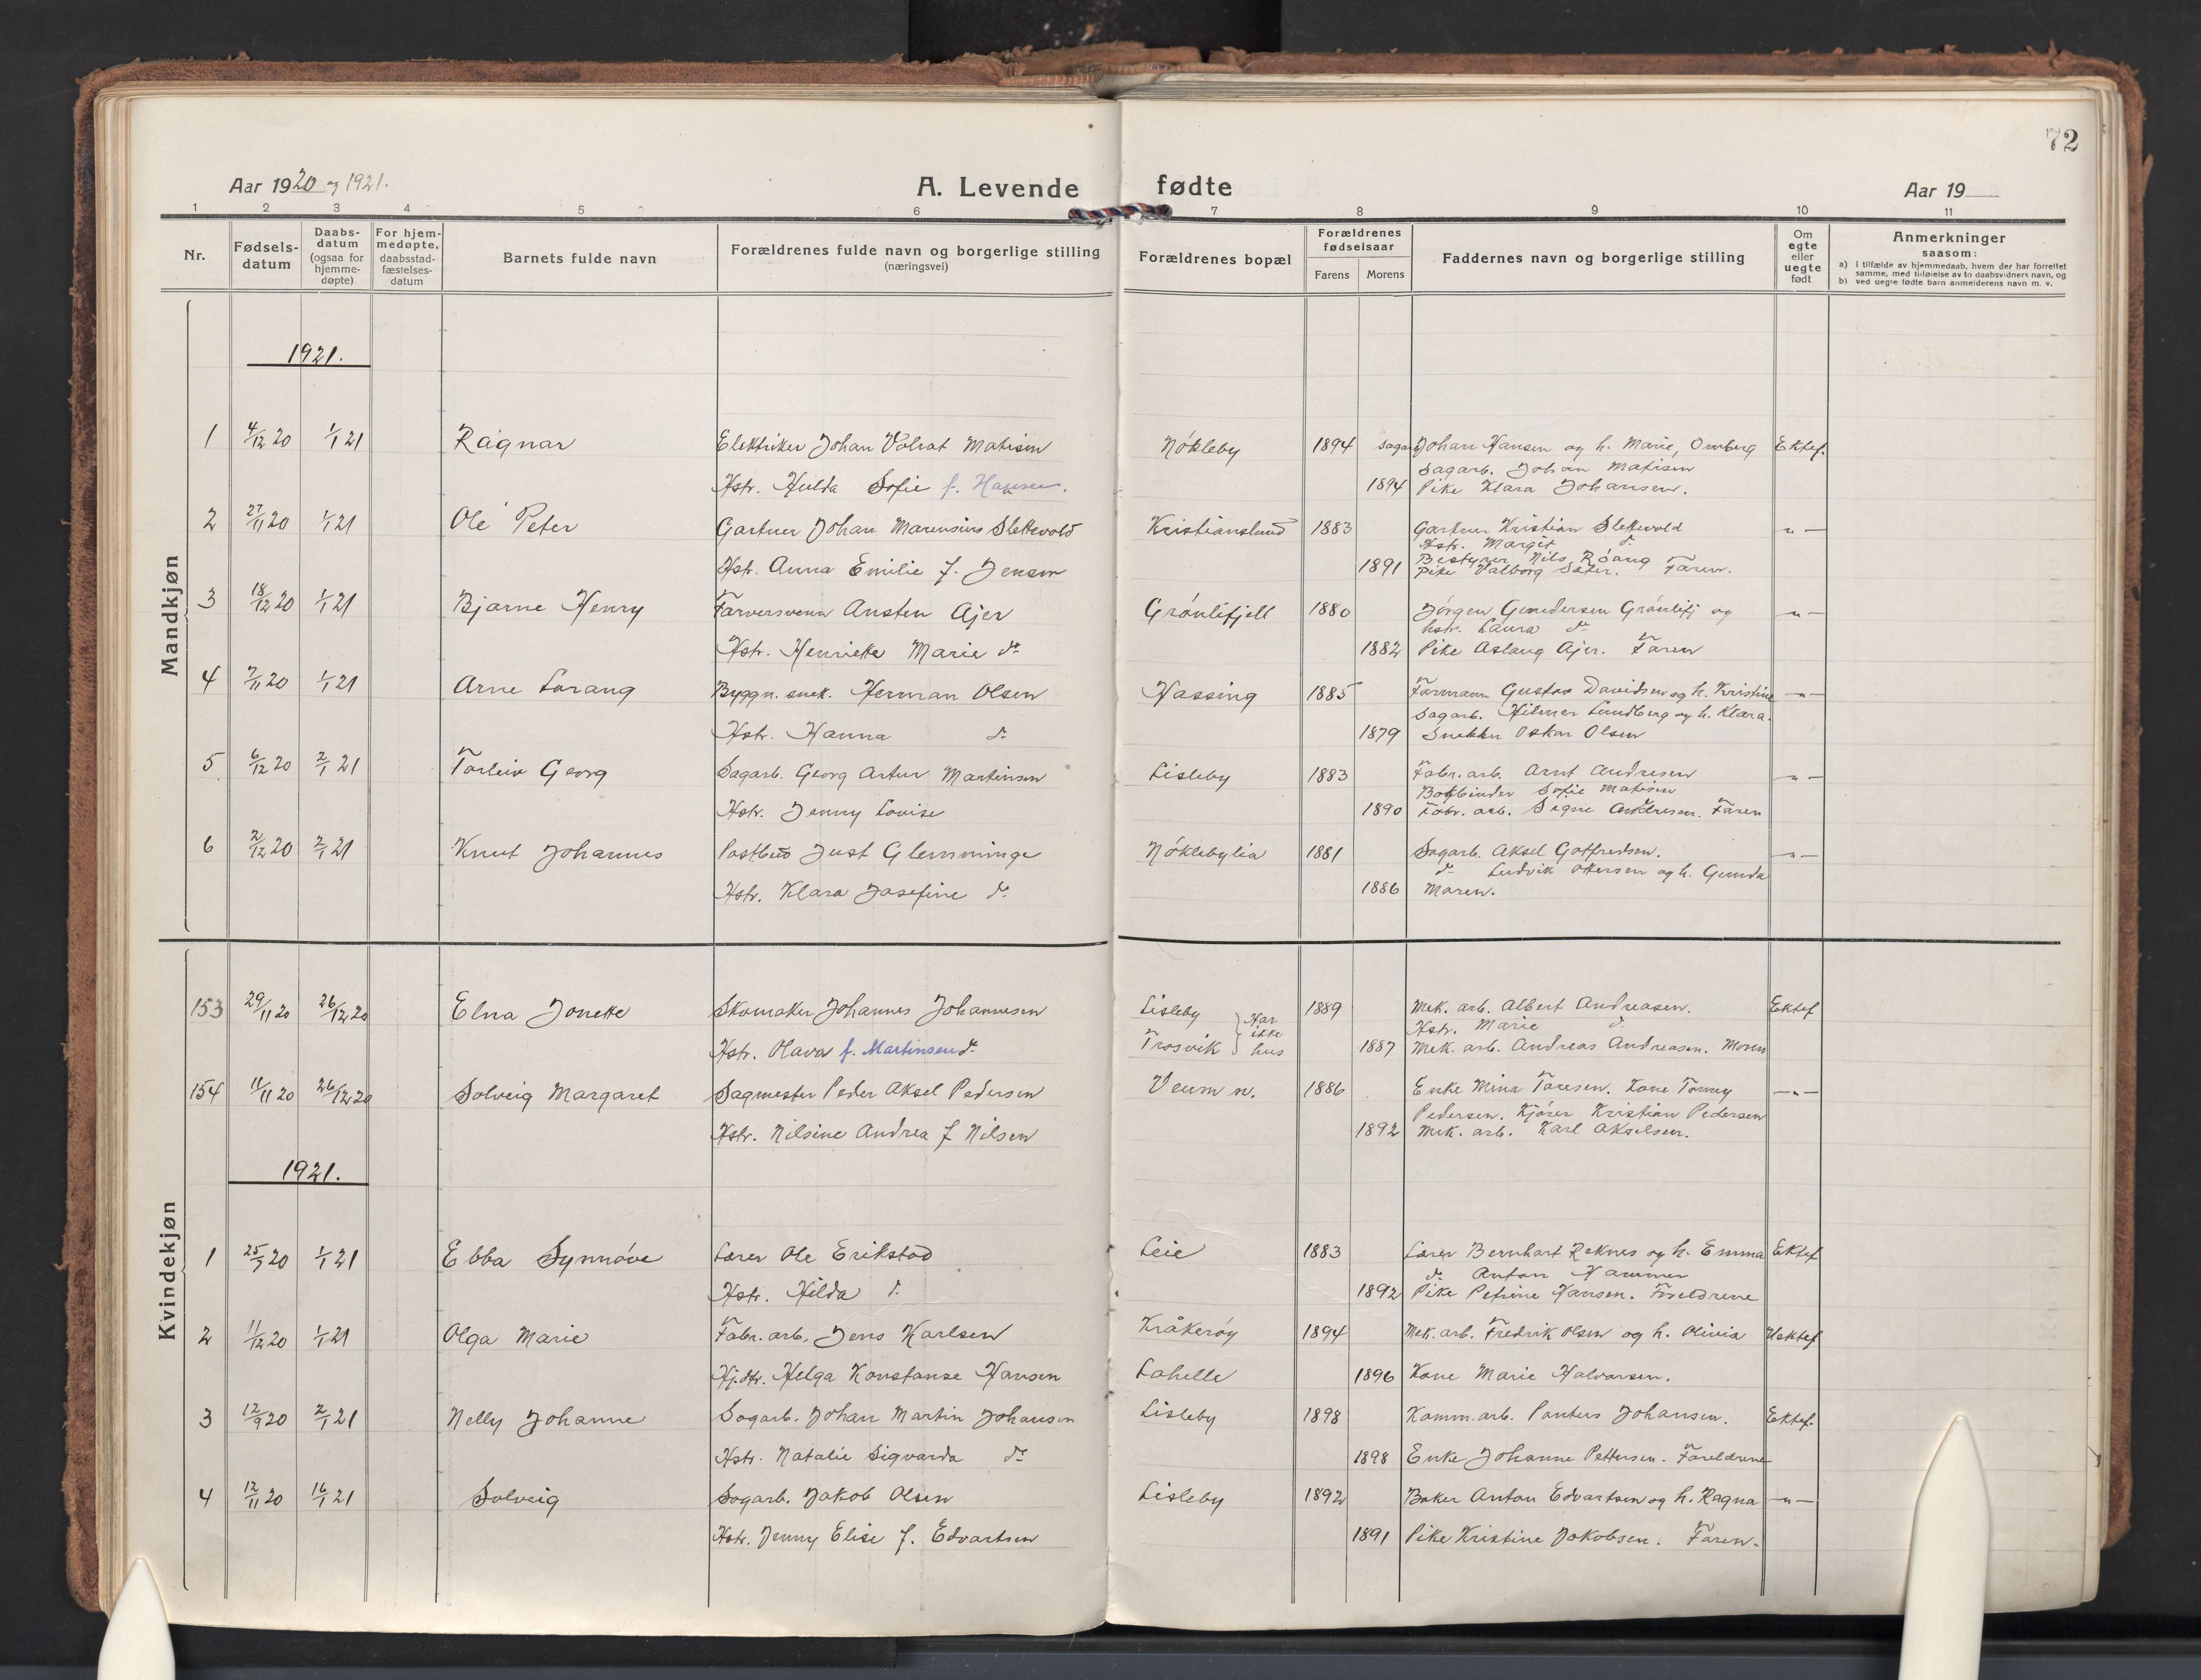 72
Aar 1920 og 1921.
A. Levende fødte
Aar 19
1 2 3 4 5 6 7 8 9 10 11
Nr.
Fødsels-
datum
Daabs-
datum
(ogsaa for
hjemme-
døpte)
For hjem-
medøpte,
daabsstad-
fæstelses-
datum
Barnets fulde navn
Forældrenes fulde navn og borgerlige stilling
(næringsvei)
Forældrenes bopæl
Forældrenes
fødselsaar
Farens Morens
Faddernes navn og borgerlige stilling
Om
egte
eller
uegte
født
Anmerkninger
saasom:
a) i tilfælde av hjemmedaab, hvem der har forrettet
samme, med tilføielse av to daabsvidners navn, og
b) ved uegte fødte barn anmelderens navn m. v.
Mandkjøn
1921.
1 4/12 20 1/1 21 Ragnar Elektriker Johan Volrat Matisen Nökleby 1894 Sagarb. Johan Hansen og h. Marie, Omberg Ektef.
Sagarb. Johan Matisen
Hstr. Hulda Sofie f. Hansen. 1894 Pike Klara Johansen.
2 27/11 20 1/1 21 Ole Peter Gartner Johan Marensius Slettevold Kristianslund 1883 Gartner Kristian Slettevold -"-
Hstr. Margit d.
Bestyrer Nils Röang
Hstr. Anna Emilie f. Jensen 1891 Pike Valborg Sæter. Faren.
3 18/12 20 1/1 21 Bjarne Henry Farversvenn Ansten Ajer Grönlifjell 1880 Jörgen Gundersen Grönlifj og -"-
hstr. Laura do
Hstr. Henriette Marie do 1882 Pike Aslaug Ajer. Faren
4 7/11 20 1/1 21 Arne Lorang Byggn. snek. Herman Olsen Hassing 1885 Formann Gustav Davidsen og h. Kristine -"-
Sagarb. Hilmer Lundberg og h. Klara.
Hstr. Hanna d. 1879 Snekker Oskar Olsen
5 6/12 20 2/1 21 Torleiv Georg Sagarb. Georg Artur Martinsen Lisleby 1883 Fabr. arb. Arnt Andresen -"-
Bokbinder Sofie Matisen
Hstr. Jenny Lovise 1890 Fabr. arb. Signe Andresen. Faren
6 2/12 20 2/1 21 Knut Johannes Postbud Just Glemminge Nöklebylia 1881 Sagarb. Aksel Gotfredsen. -"-
do Ludvik Ottersen og h. Gunda
Hstr. Klara Josefine do 1886 Moren.
Kvindekjøn
153 29/11 20 26/12 20 Elna Jonette Skomaker Johannes Johannesen Lisleby 1889 Mek. arb. Albert Andreasen. Ektef
Hstr. Marie d.
Hstr. Olava f. Martinsen d. Trosvik } Har ikke hus 1887 Mek. arb. Andreas Andreasen. Moren
154 11/11 20 26/12 20 Solveig Margaret Sagmester Peder Aksel Pedersen Veum n. 1886 Enke Mina Toresen. Kone Tomny -"-
Pedersen. Kjörer Kristian Pedersen
Hstr. Nilsine Andrea f Nilsen 1892 Mek. arb. Karl Akselsen.
1921.
1 25/7 20 1/1 21 Ebba Synnöve Lærer Ole Erikstad Leie 1883 Lærer Bernhart Reknes og h. Emma Ektef
do Anton Hammer
Hstr. Hilda d. 1892 Pike Petrine Hansen. Foreldrene
2 11/12 20 1/1 21 Olga Marie Fabr. arb. Jens Karlsen Kråkeröy 1894 Mek. arb. Fredrik Olsen og h. Olivia Uektef
Hj.dtr. Helga Konstanse Hansen Lahelle 1896 Kone Marie Halvorsen.
3 12/9 20 2/1 21 Nelly Johanne Sagarb. Johan Martin Johansen Lisleby 1898 Komm. arb. Pontus Johansen. Ektef.
Hstr. Natalie Sigvarda do 1898 Enke Johanne Pettersen. Foreldrene
4 12/11 20 16/1 21 Solveig Sagarb. Jakob Olsen Lisleby 1892 Baker Anton Edvartsen og h. Ragna -"-
Hstr. Jenny Elise f. Edvartsen 1891 Pike Kristine Jakobsen. Faren.